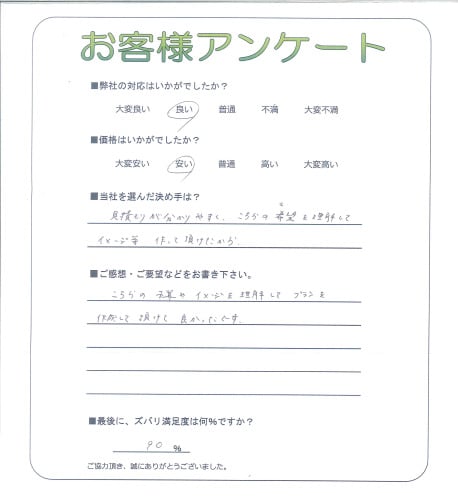 お客様アンケート
■弊社の対応はいかがでしたか？
大変良い 良い 普通 不満 大変不満
■価格はいかがでしたか？
大変安い 安い 普通 高い 大変高い
■当社を選んだ決め手は？
見積もりが分かりやすく、こちらの希望を理解して
イメージ等 作って頂けたから。
■ご感想・ご要望などをお書き下さい。
こちらの 予算や イメージを 理解して プランを
作成して 頂けて 良かったです。
■最後に、ズバリ満足度は何％ですか？
90 ％
ご協力頂き、誠にありがとうございました。